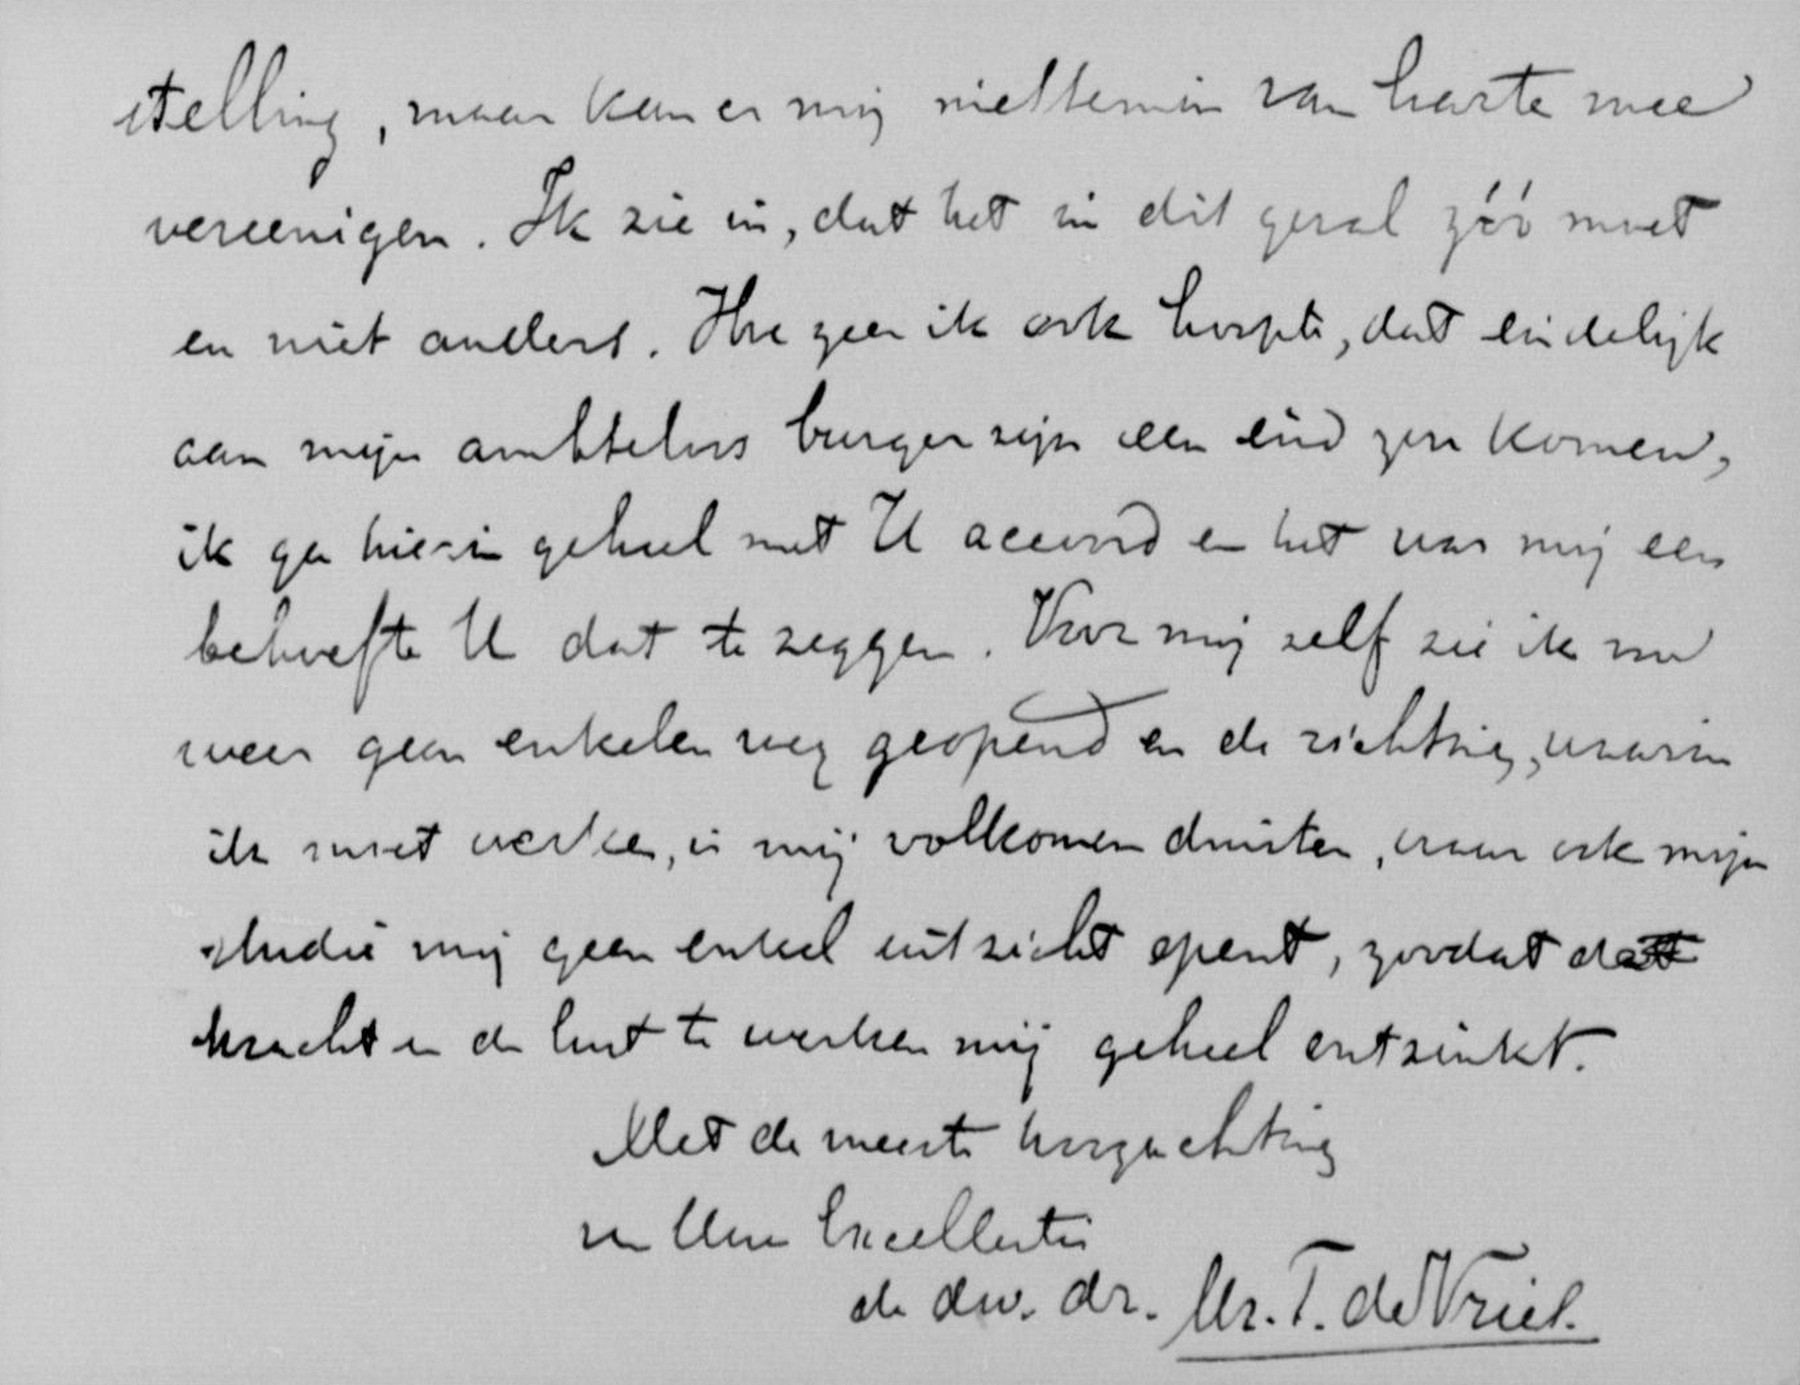 stelling, maar kan er mij niettemin van harte mee
vereenigen. Ik zie in, dat het in dit geval zóó moet
en niet anders. Hoe zeer ik ook hoopte, dat eindelijk
aan mijn ambteloos burger zijn een eind zou komen,
ik ga hierin geheel met U accoord en het was mij een
behoefte U dat te zeggen. Voor mij zelf zie ik nu
weer geen enkelen weg geopend en de richting, waarin
ik moet werken, is mij volkomen duister, waar ook mijn
studie mij geen enkel uitzicht opent, zoodat de
kracht en de lust te werken mij geheel ontzinkt.
Met de meeste hoogachting
van Uwe Excellentie
de dw. dr. Mr. T. de Vries.